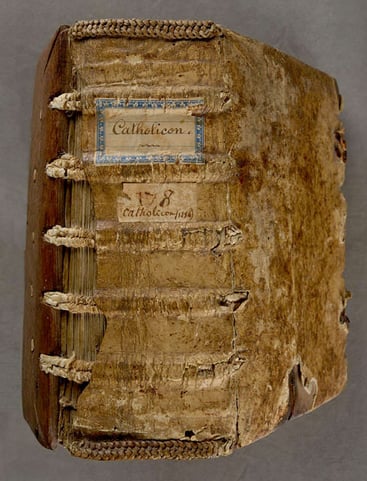 Catholicon.
178
Catholicon